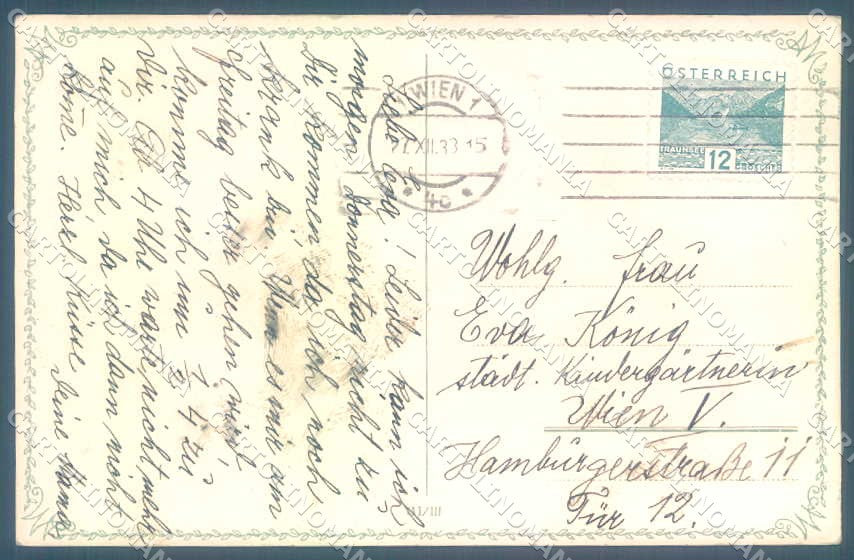 Liebe Eva! Leider kann ich
morgen Donnerstag nicht zu
Dir kommen, da ich noch
krank bin. Wenn es mir am
Freitag besser gehen wird,
komme ich um ½ 4 zu
Dir. Bis 4 Uhr warte nicht mehr
auf mich, da ich dann nicht
kome. Herzl. Küsse Deine
WIEN 1
27.XII.33 15
* 4c *
ÖSTERREICH
TRAUNSEE
12
GROSCHEN
Wohlg. Frau
Eva König
städt. Kindergärtnerin
Wien V.
Hamburgerstraße 11
Tür 12.
III/III
CARTOLINOMANIA